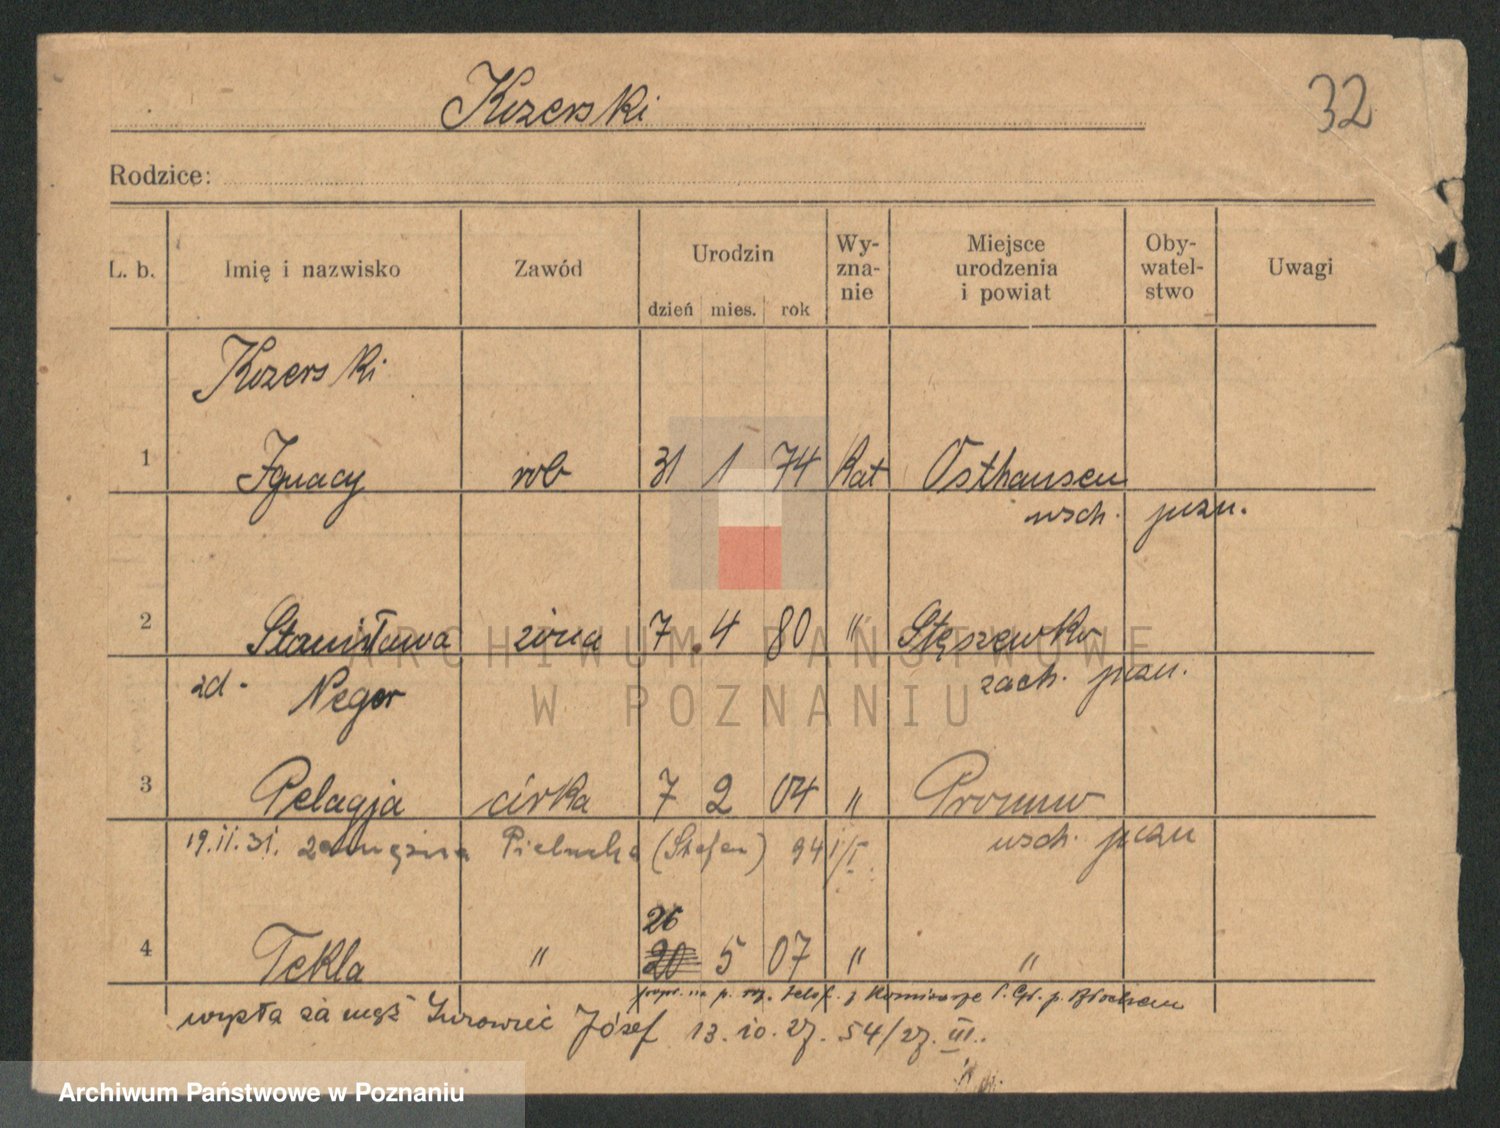 Kozerski
32
Rodzice:
L. b. Imię i nazwisko Zawód Urodzin dzień mies. rok Wy-zna-nie Miejsce urodzenia i powiat Oby-watel-stwo Uwagi
Kozerski
1 Ignacy rob 31 1 74 Kat Osthausen
wsch. pozn.
2 Stanisława żona 7. 4 80 " Stęszewko
ARCHIWUM PAŃSTWOWE
zd. Neger zach. pozn.
W POZNANIU
3 Pelagja córka 7 2 04 " Promno
19.II.31. zamężna Pielucha (Stefan) 94 1/I. wsch. pozn
26
4 Tekla " 20 5 07 " "
p. telef. z Komisarje P.
wyszła za mąż Józef 13.10.27. 54/27. III.
Archiwum Państwowe w Poznaniu